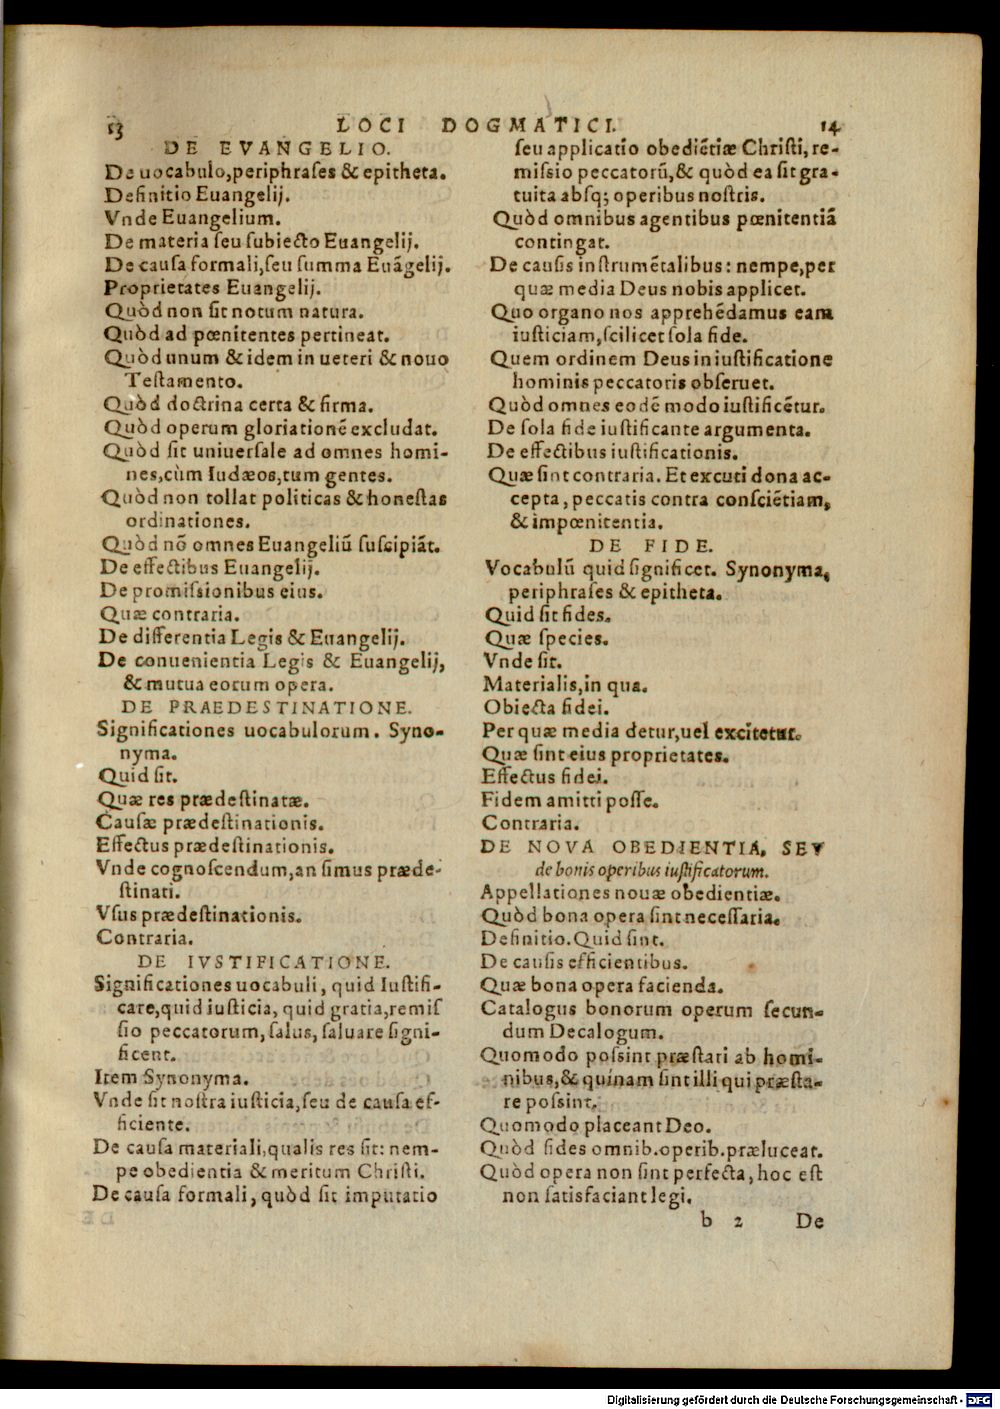 13 LOCI DOGMATICI. 14
DE EVANGELIO.
De uocabulo,periphrases & epitheta.
Definitio Euangelij.
Vnde Euangelium.
De materia seu subiecto Euangelij.
De causa formali,seu summa Euãgelij.
Proprietates Euangelij.
Quòd non sit notum natura.
Quòd ad pœnitentes pertineat.
Quòd unum & idem in ueteri & nouo
Testamento.
Quòd doctrina certa & firma.
Quòd operum gloriationẽ excludat.
Quòd sit uniuersale ad omnes homi-
nes,cùm Iudæos,tum gentes.
Quòd non tollat politicas & honestas
ordinationes.
Quòd nõ omnes Euangeliũ suscipiãt.
De effectibus Euangelij.
De promissionibus eius.
Quæ contraria.
De differentia Legis & Euangelij.
De conuenientia Legis & Euangelij,
& mutua eorum opera.
DE PRAEDESTINATIONE.
Significationes uocabulorum. Syno-
nyma.
Quid sit.
Quæ res prædestinatæ.
Causæ prædestinationis.
Effectus prædestinationis.
Vnde cognoscendum,an simus præde-
stinati.
Vsus prædestinationis.
Contraria.
DE IVSTIFICATIONE.
Significationes uocabuli, quid Iustifi-
care,quid iusticia, quid gratia,remis
sio peccatorum,salus, saluare signi-
ficent.
Item Synonyma.
Vnde sit nostra iusticia,seu de causa ef-
ficiente.
De causa materiali,qualis res sit: nem-
pe obedientia & meritum Christi.
De causa formali, quòd sit imputatio
seu applicatio obediẽtiæ Christi, re-
missio peccatorũ,& quòd ea sit gra-
tuita absq; operibus nostris.
Quòd omnibus agentibus pœnitentiã
contingat.
De causis instrumẽtalibus: nempe,per
quæ media Deus nobis applicet.
Quo organo nos apprehẽdamus eam
iusticiam,scilicet sola fide.
Quem ordinem Deus in iustificatione
hominis peccatoris obseruet.
Quòd omnes eodẽ modo iustificẽtur.
De sola fide iustificante argumenta.
De effectibus iustificationis.
Quæ sint contraria. Et excuti dona ac-
cepta, peccatis contra consciẽtiam,
& impœnitentia.
DE FIDE.
Vocabulũ quid significet. Synonyma,
periphrases & epitheta.
Quid sit fides.
Quæ species.
Vnde sit.
Materialis,in qua.
Obiecta fidei.
Per quæ media detur,uel excitetur.
Quæ sint eius proprietates.
Effectus fidei.
Fidem amitti posse.
Contraria.
DE NOVA OBEDIENTIA, SEV
de bonis operibus iustificatorum.
Appellationes nouæ obedientiæ.
Quòd bona opera sint necessaria.
Definitio. Quid sint.
De causis efficientibus.
Quæ bona opera facienda.
Catalogus bonorum operum secun-
dum Decalogum.
Quomodo possint præstari ab homi-
nibus,& quinam sint illi qui præsta-
re possint.
Quomodo placeant Deo.
Quòd fides omnib.operib.præluceat.
Quòd opera non sint perfecta, hoc est
non satisfaciant legi.
b 2 De
Digitalisierung gefördert durch die Deutsche Forschungsgemeinschaft - DFG